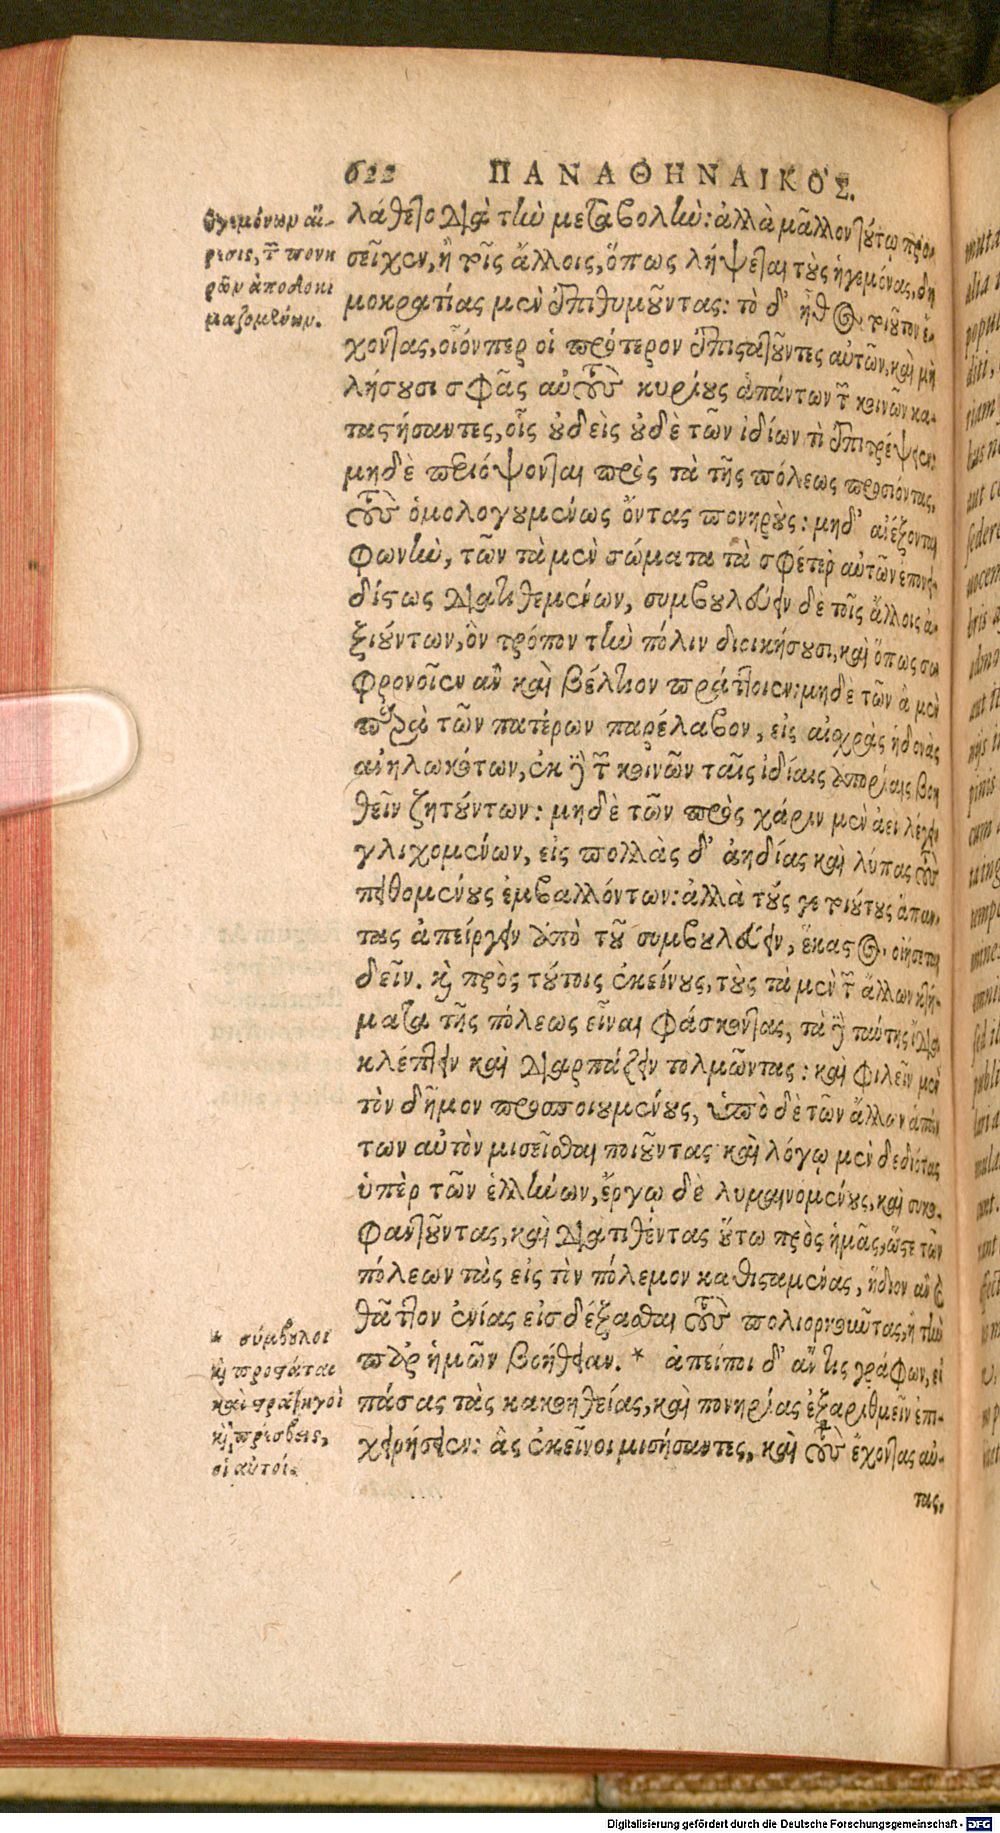 622 ΠΑΝΑΘΗΝΑΙΚΟΣ.
ἡγεμόνων αἵ-
ρεσις, τῶν πονη
ρῶν ἀποδοκι
μαζομένων.
λάθετο διὰ τὴν μεταβολὴν: ἀλλὰ μᾶλλον τούτῳ προ-
σεῖχεν, ἢ τοῖς ἄλλοις, ὅπως λήψεται τοὺς ἡγεμόνας, δη
μοκρατίας μὲν ἐπιθυμοῦντας: τὸ δ' ἦθος τοιοῦτον ἔ-
χοντας, οἷόνπερ οἱ πρότερον ἐπιστατοῦντες αὐτῶν, καὶ μὴ
λήσουσι σφᾶς αὐτοὺς κυρίους ἁπάντων τῶν κοινῶν κα-
ταστήσαντες, οἷς οὐδεὶς οὐδὲ τῶν ἰδίων τὶ ἐπιτρέψειεν:
μηδὲ περιόψονται πρὸς τὰ τῆς πόλεως προσιόντας,
τοὺς ὁμολογουμένως ὄντας πονηρούς: μηδ' ἀνέξονται
φωνὴν, τῶν τὰ μὲν σώματα τὰ σφέτερ' αὐτῶν ἐπονει-
δίστως διατιθεμένων, συμβουλεύειν δὲ τοῖς ἄλλοις ἀ-
ξιούντων, ὃν τρόπον τὴν πόλιν διοικήσουσι, καὶ ὅπως σω
φρονοῖεν ἂν καὶ βέλτιον πράττοιεν: μηδὲ τῶν ἃ μὲν
παρὰ τῶν πατέρων παρέλαβον, εἰς αἰσχρὰς ἡδονὰς
ἀνηλωκότων, ἐκ δὲ τῶν κοινῶν ταῖς ἰδίαις ἀπορίαις βοη
θεῖν ζητούντων: μηδὲ τῶν πρὸς χάριν μὲν ἀεὶ λέγειν
γλιχομένων, εἰς πολλὰς δ' ἀηδίας καὶ λύπας τοὺς
πειθομένους ἐμβαλλόντων: ἀλλὰ τούς γε τοιούτους ἅπαν-
τας ἀπείργειν ἀπὸ τοῦ συμβουλεύειν, ἕκαστος οἰήσεται
δεῖν. καὶ πρὸς τούτοις ἐκείνους, τοὺς τὰ μὲν τῶν ἄλλων κτή-
ματα τῆς πόλεως εἶναι φάσκοντας, τὰ δὲ ταύτης ἴδια
κλέπτειν καὶ διαρπάζειν τολμῶντας: καὶ φιλεῖν μὲν
τὸν δῆμον προσποιουμένους, ὑπὸ δὲ τῶν ἄλλων ἁπάν
των αὐτὸν μισεῖσθαι ποιοῦντας· καὶ λόγῳ μὲν δεδιότας
ὑπὲρ τῶν ἑλλήνων, ἔργῳ δὲ λυμαινομένους, καὶ συκο-
φαντοῦντας, καὶ διατιθέντας οὕτω πρὸς ἡμᾶς, ὥστε τῶν
πόλεων τὰς εἰς τὸν πόλεμον καθισταμένας, ἥδιον ἂν καὶ
θᾶττον ἐνίας εἰσδέξασθαι τοὺς πολιορκοῦντας, ἢ τὴν
παρ' ἡμῶν βοήθειαν. * ἀπείποι δ' ἄν τις γράφων, εἰ
πάσας τὰς κακοηθείας, καὶ πονηρίας ἐξαριθμεῖν ἐπι-
χειρήσειεν: ἃς ἐκεῖνοι μισήσαντες, καὶ τοὺς ἔχοντας αὐ-
τὰς,
* σύμβουλοι
καὶ προστάται
καὶ στρατηγοὶ
καὶ πρέσβεις,
οἱ αὐτοί.
Digitalisierung gefördert durch die Deutsche Forschungsgemeinschaft - DFG